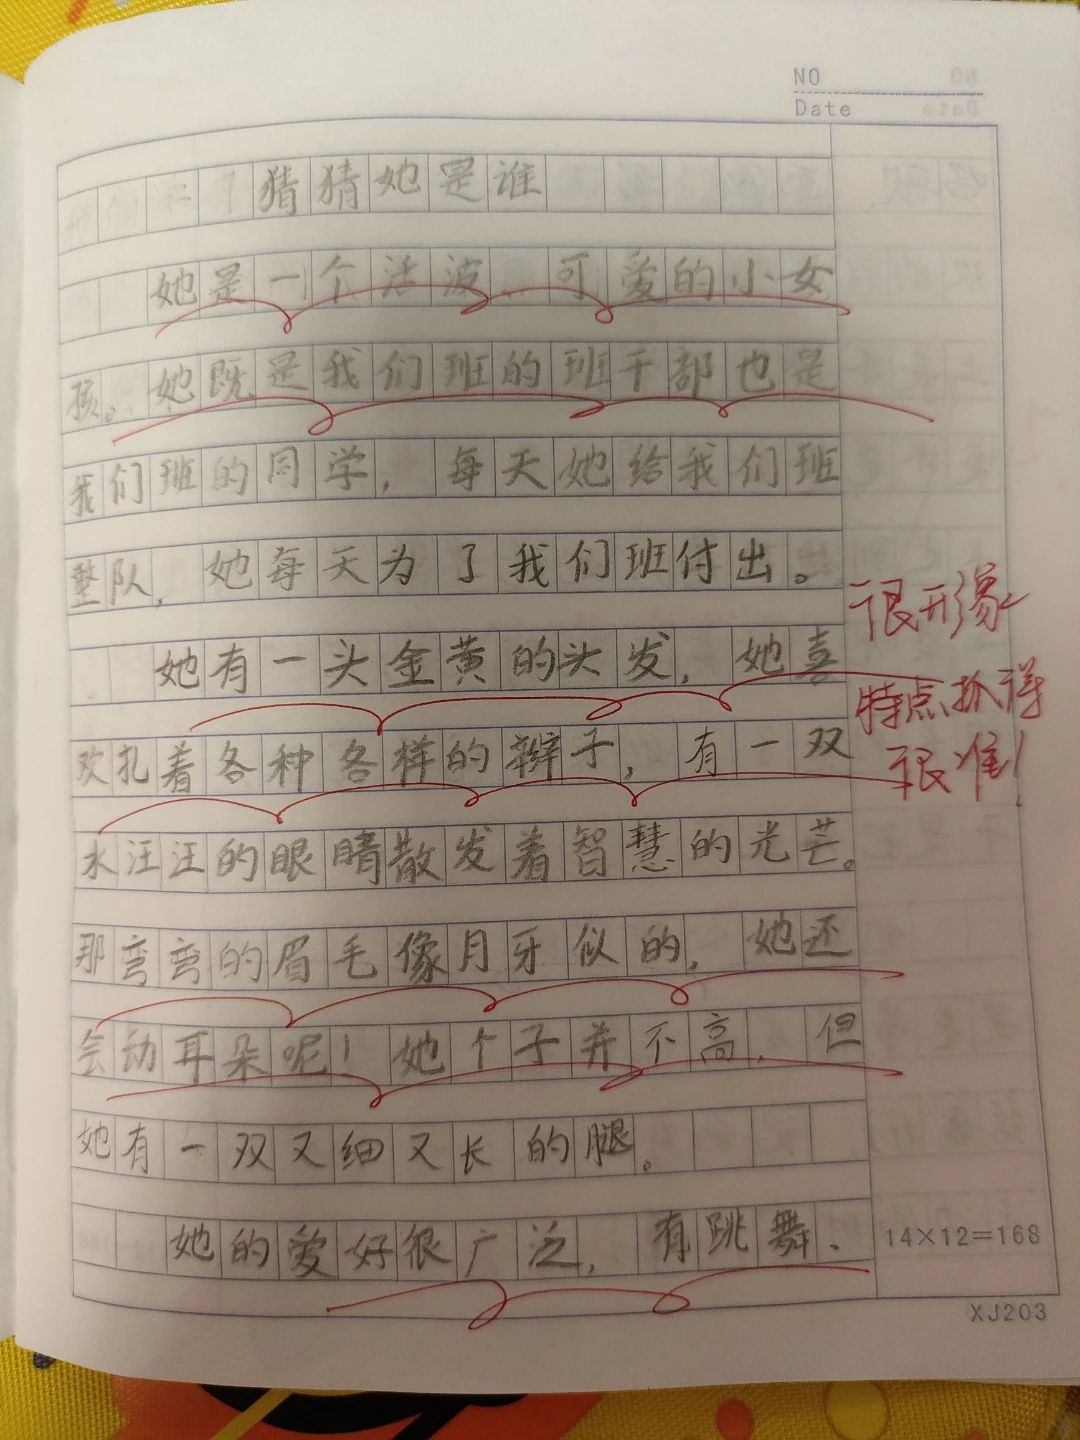 NO
Date
猜猜她是谁
她是一个活波 可爱的小女
孩。她既是我们班的班干部也是
我们班的同学，每天她给我们班
整队，她每天为了我们班付出。
她有一头金黄的头发，她喜
欢扎着各种各样的辫子，有一双
水汪汪的眼睛散发着智慧的光芒。
那弯弯的眉毛像月牙似的，她还
会动耳朵呢！她个子并不高，但
她有一双又细又长的腿。
她的爱好很广泛，有跳舞.
很形象
特点抓得
很准！
14×12=168
XJ203